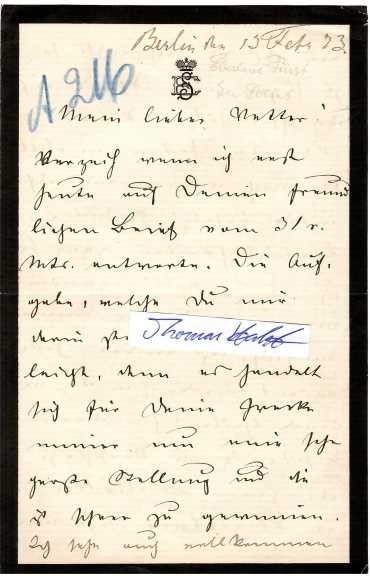 Berlin den 13 Febr 93.
A 216
Mein lieber Vetter!
Verzeih wenn ich erst
heute auf Deinen freund
lichen Brief vom 31 v.
Mts. antworte. Die Auf-
gabe, welche Du mir
darin
Thomas
leicht, denn es handelt
sich für Deine Zwecke
immer um eine sehr
große Stellung und die
ist schwer zu gewinnen.
Ich sehe auch vollkommen